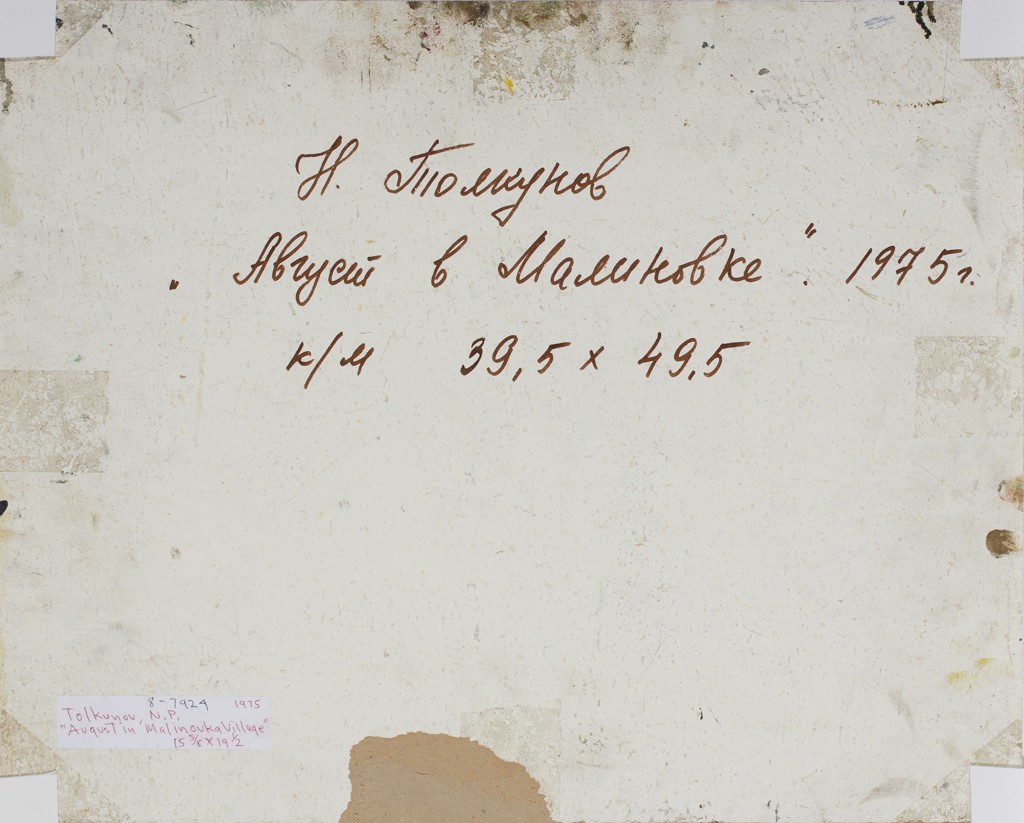 Н. Толкунов
„Август в Малиновке". 1975г.
к/м 39,5 x 49,5
8-7924 1975
Tolkunov, N.P.
"August in Malinovka Village"
15 5/8 x 19 1/2